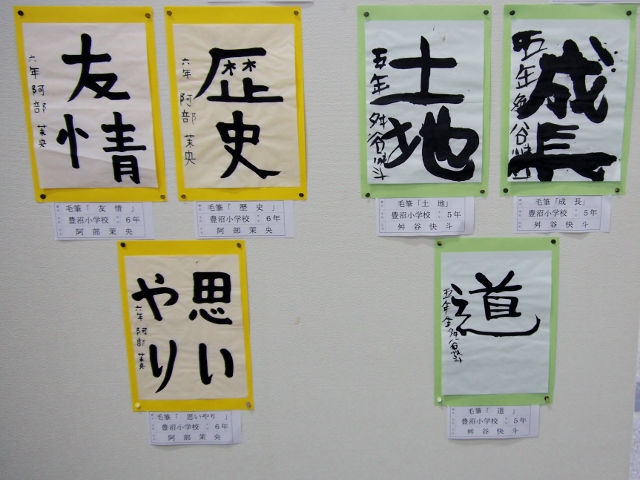 友情
六年 阿部 茉央
毛筆「 友 情 」
豊沼小学校 : 6年
阿部 茉央
歴史
六年 阿部 茉央
毛筆「 歴 史 」
豊沼小学校 : 6年
阿部 茉央
土地
五年 舛谷快斗
毛筆「土 地」
豊沼小学校 : 5年
舛谷快斗
成長
五年 舛谷快斗
毛筆「成 長」
豊沼小学校 : 5年
舛谷快斗
思い
やり
六年 阿部 茉央
毛筆「 思いやり 」
豊沼小学校 : 6年
阿部 茉央
道
五年 舛谷快斗
毛筆「 道 」
豊沼小学校 : 5年
舛谷快斗